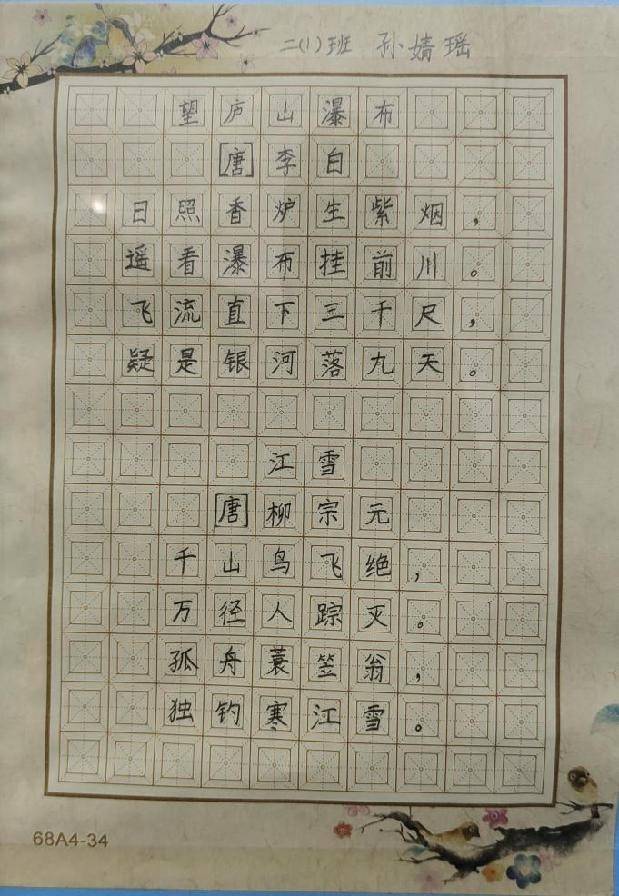 二(1)班 孙婧瑶
望庐山瀑布
[唐]李白
日照香炉生紫烟，
遥看瀑布挂前川。
飞流直下三千尺，
疑是银河落九天。
江雪
[唐]柳宗元
千山鸟飞绝，
万径人踪灭。
孤舟蓑笠翁，
独钓寒江雪。
68A4-34